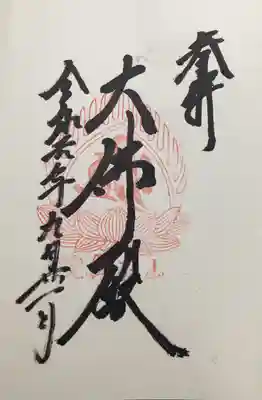 奉拝
大佛殿
令和六年九月廿一日